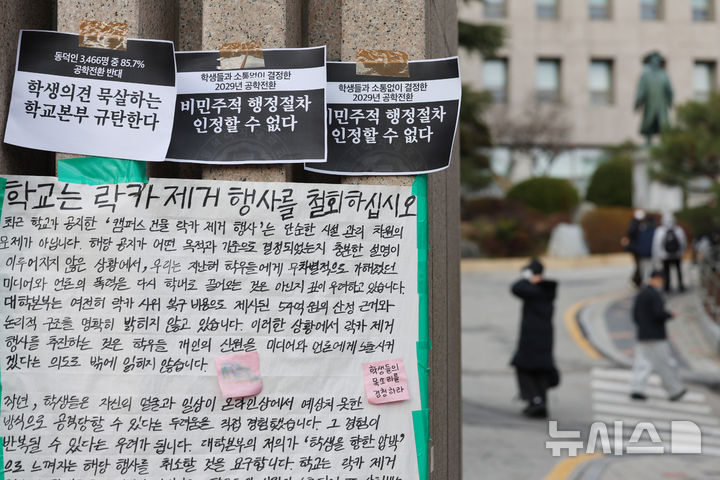 동덕인 3,466명 중 85.7%
공학전환 반대
학생의견 묵살하는
학교본부 규탄한다
학생들과 소통없이 결정한
2029년 공학전환
비민주적 행정절차
인정할 수 없다
학생들과 소통없이 결정한
2029년 공학전환
비민주적 행정절차
인정할 수 없다
학교는 락카 제거 행사를 철회하십시오
최근 학교가 공지한 '캠퍼스 건물 락카 제거 행사'는 단순한 시설 관리 차원의
문제가 아닙니다. 해당 공지가 어떤 목적과 기준으로 결정되었는지 충분한 설명이
이루어지지 않은 상황에서, 우리는 지난해 학우들에게 무차별적으로 가해졌던
미디어와 언론의 폭력을 다시 학내로 끌어오는 것은 아닌지 깊이 우려하고 있습니다.
대학본부는 여전히 락카 사위 복구 비용으로 제시된 54억 원의 산정 근거와
논리적 구조를 명확히 밝히지 않고 있습니다. 이러한 상황에서 락카 제거
행사를 추진하는 것은 학우들 개인의 신원을 미디어와 언론에게 노출시키
겠다는 의도로 밖에 읽히지 않습니다.
작년, 학생들은 자신의 얼굴과 일상이 온라인상에서 예상치 못한
방식으로 공격당할 수 있다는 두려움을 직접 경험했습니다. 그 경험이
반복될 수 있다는 우려가 큽니다. 대학본부의 저의가 "학생을 향한 압박"
으로 느껴지는 해당 행사를 취소할 것을 요구합니다. 학교는 락카 제거
학생들의
목소리를
경청하라
뉴시스